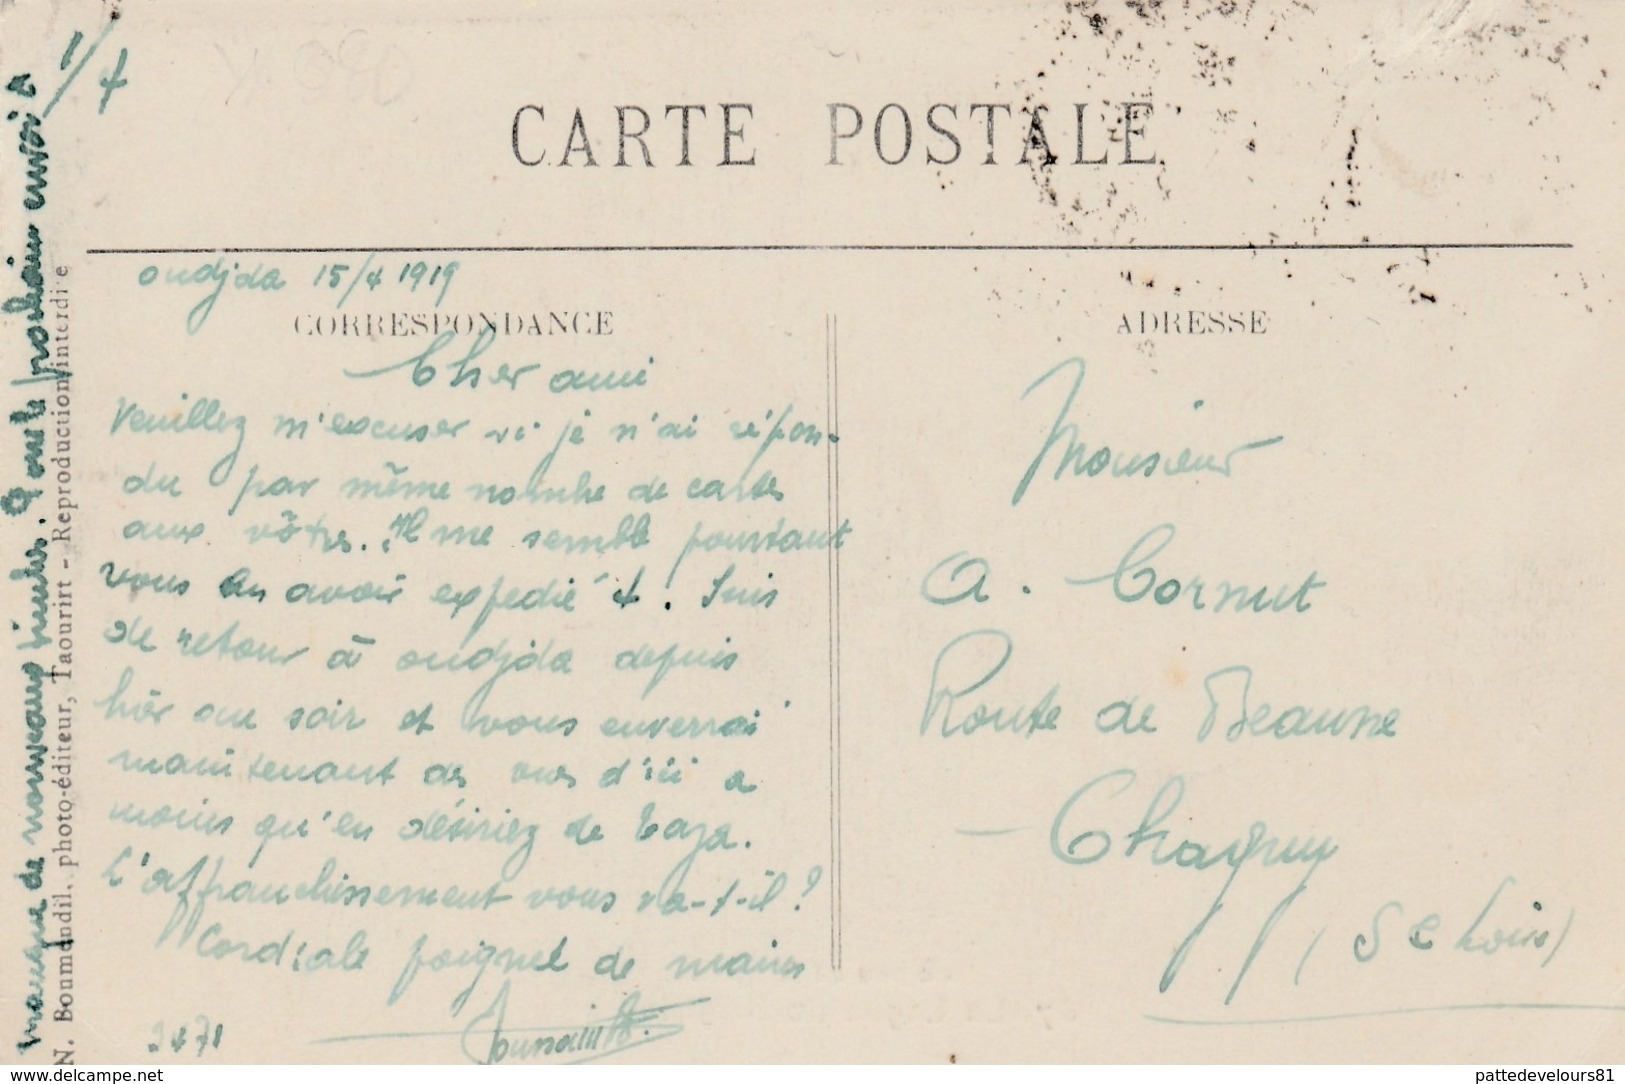 CARTE POSTALE
oudjda 15/4 1919
CORRESPONDANCE
Cher ami
Veuillez m'excuser si je n'ai répon-
du par même nombre de cartes
aux vôtres. Il me semble pourtant
vous en avoir expedié 4. Suis
de retour à oudjda depuis
hier au soir et vous enverrai
maintenant des vues d'ici a
moins qu'en désiriez de Taza.
L'affranchissement vous va-t-il?
Cordiale poignet de mains
Toussaint
manque de nouveaux timbres. pour le prochain envoi a
1/4
N. Boumendil, photo-éditeur, Taourirt - Reproduction interdite
ADRESSE
Monsieur
A. Cornut
Route de Beaune
Chagny
(S et Loire)
www.delcampe.net
pattedevelours81